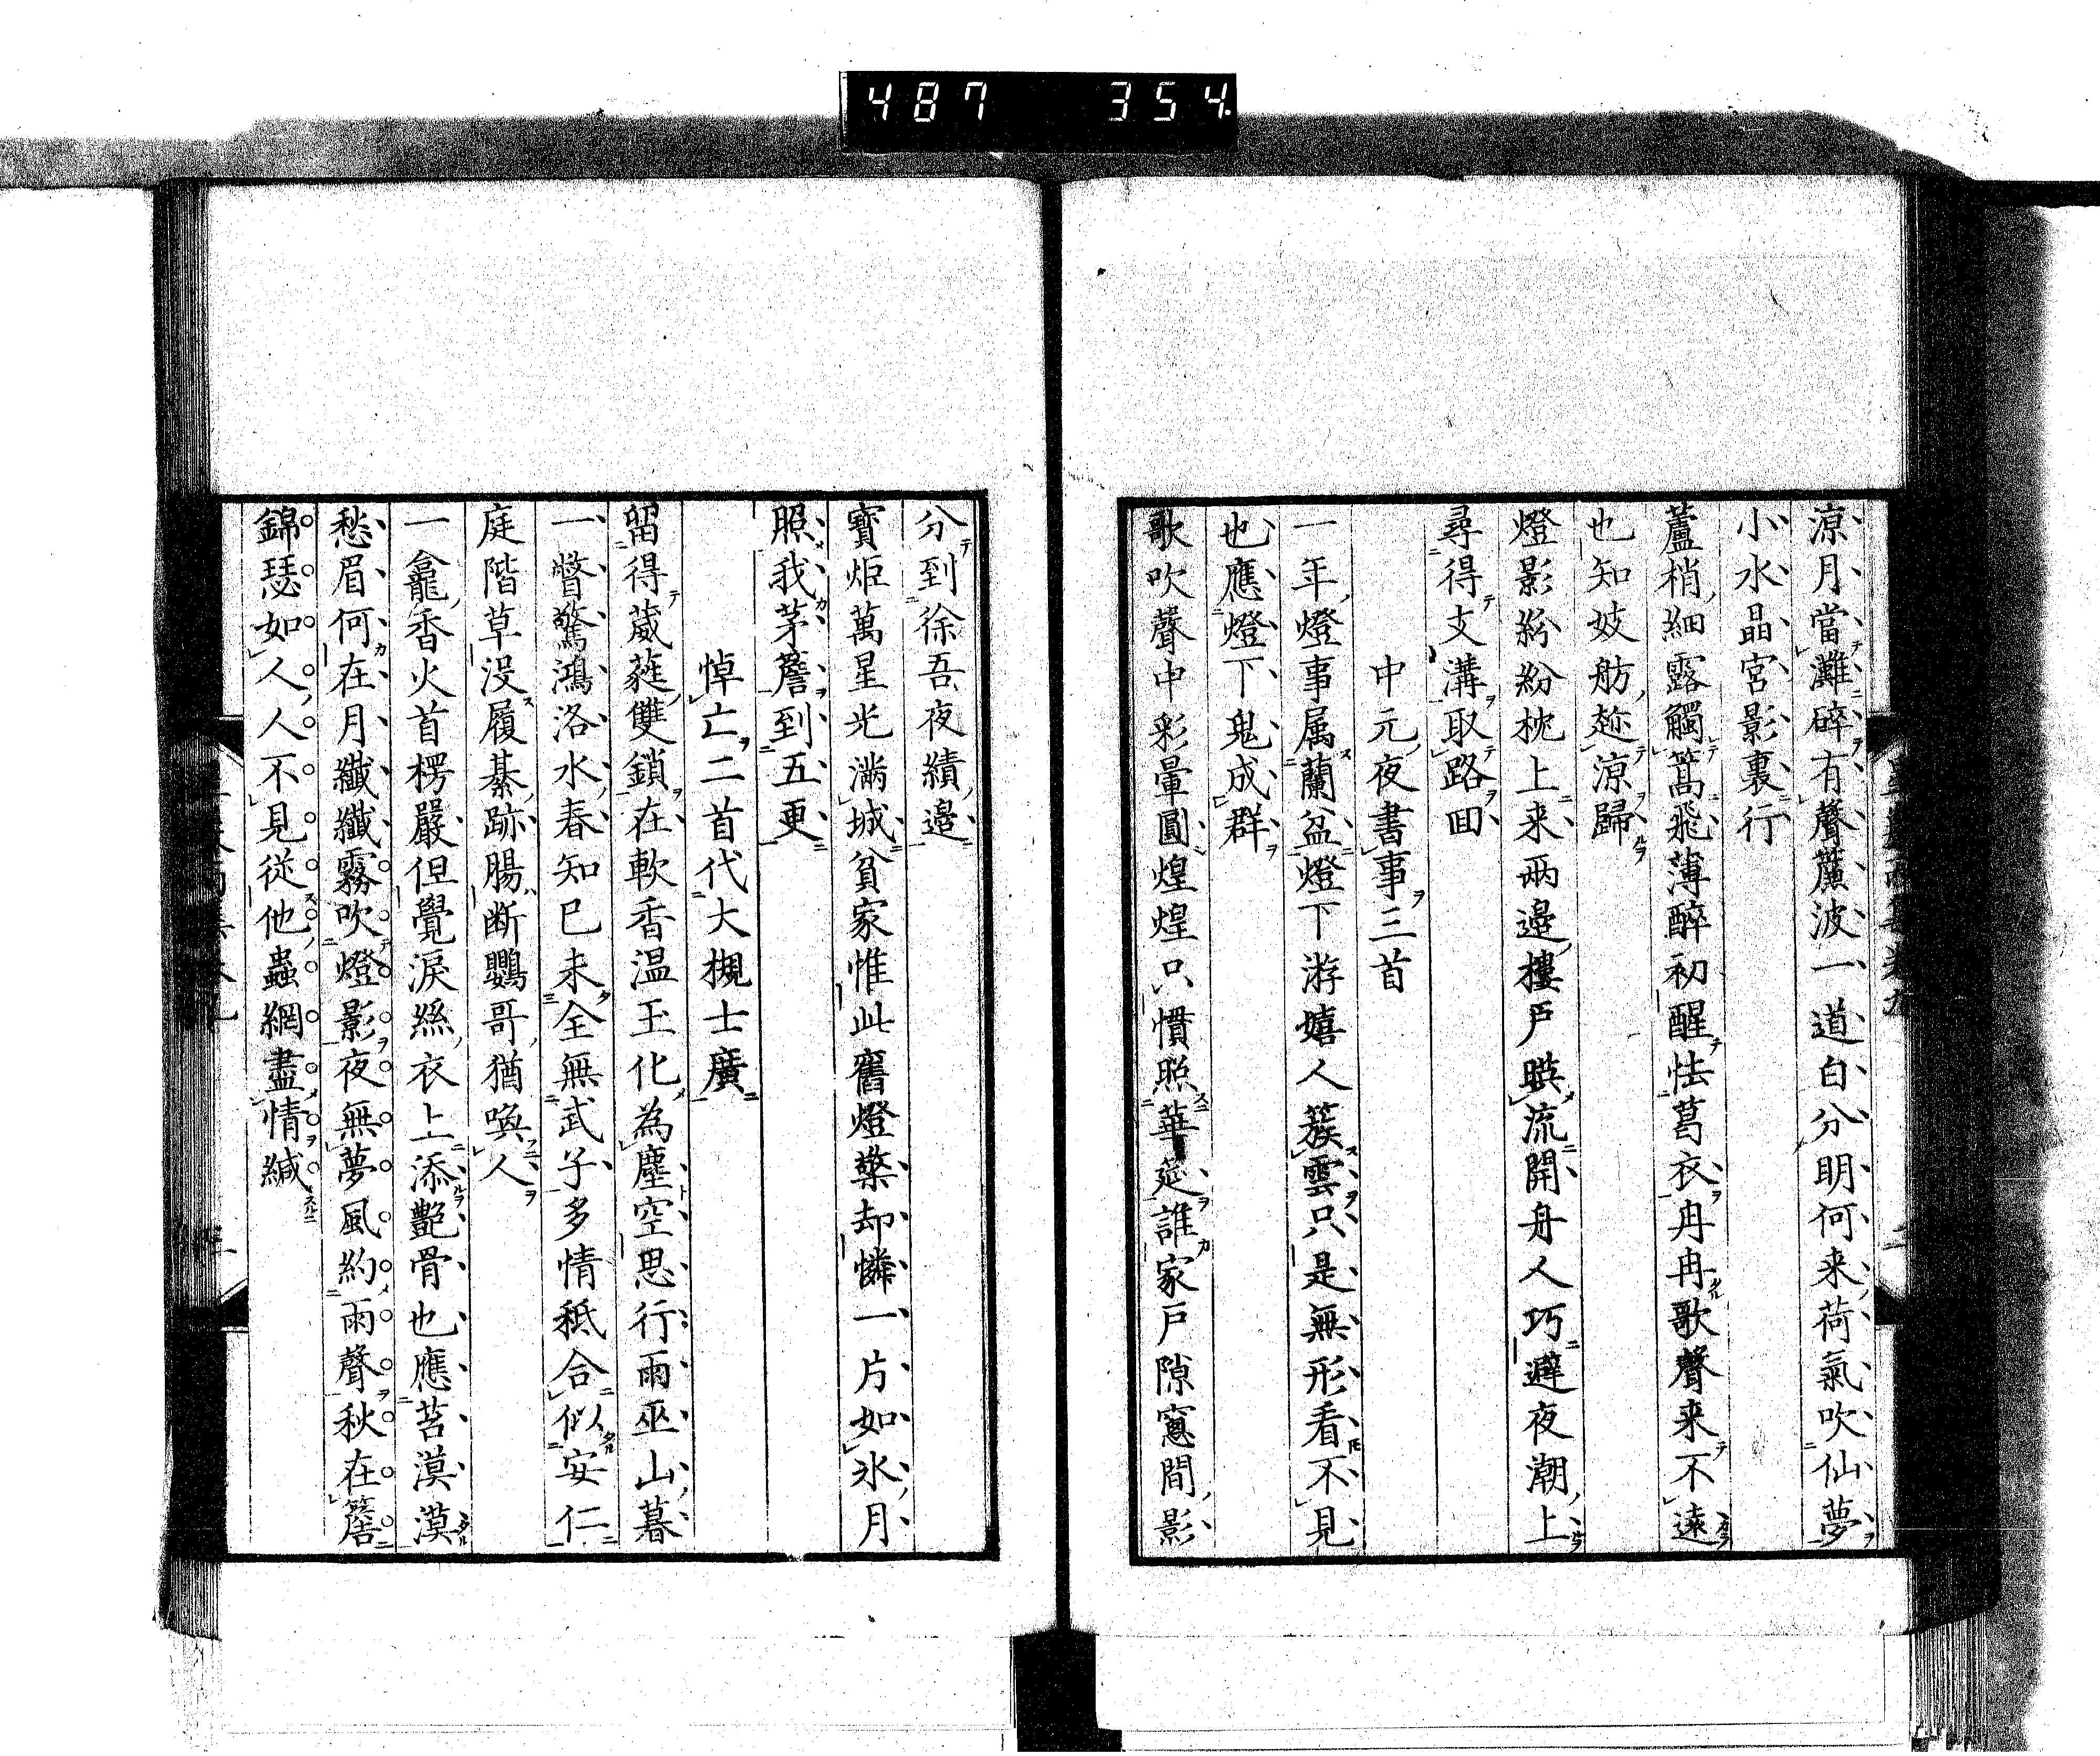 487 354
涼月當灘碎有聲簾波一道白分明何来荷氣吹仙夢
小水晶宮影裏行
蘆梢細露觸篙飛薄醉初醒怯葛衣冉冉歌聲来不遠
也知妓舫趂涼歸
燈影紛紛枕上来兩邉樓戸暎流開舟人巧避夜潮上
尋得支溝取路回
中元夜書事三首
一年燈事属蘭盆燈下游嬉人簇雲只是無形看不見
也應燈下鬼成群
歌吹聲中彩暈圓煌煌只慣照華筵誰家戸隙窻間影
分到徐吾夜績邉
寳炬萬星光滿城貧家惟此舊燈檠却憐一片如氷月
照我茅簷到五更
悼亡二首代大槻士廣
留得葳蕤雙鎖在軟香温玉化為塵空思行雨巫山暮
一瞥驚鴻洛水春知已未全無武子多情秪合似安仁
庭階草没履綦跡腸断鸚哥猶喚人
一龕香火首楞嚴但覺淚絲衣上添艶骨也應苔漠漠
愁眉何在月纖纖霧吹燈影夜無夢風約雨聲秋在簷
錦瑟如人人不見従他蟲網盡情緘